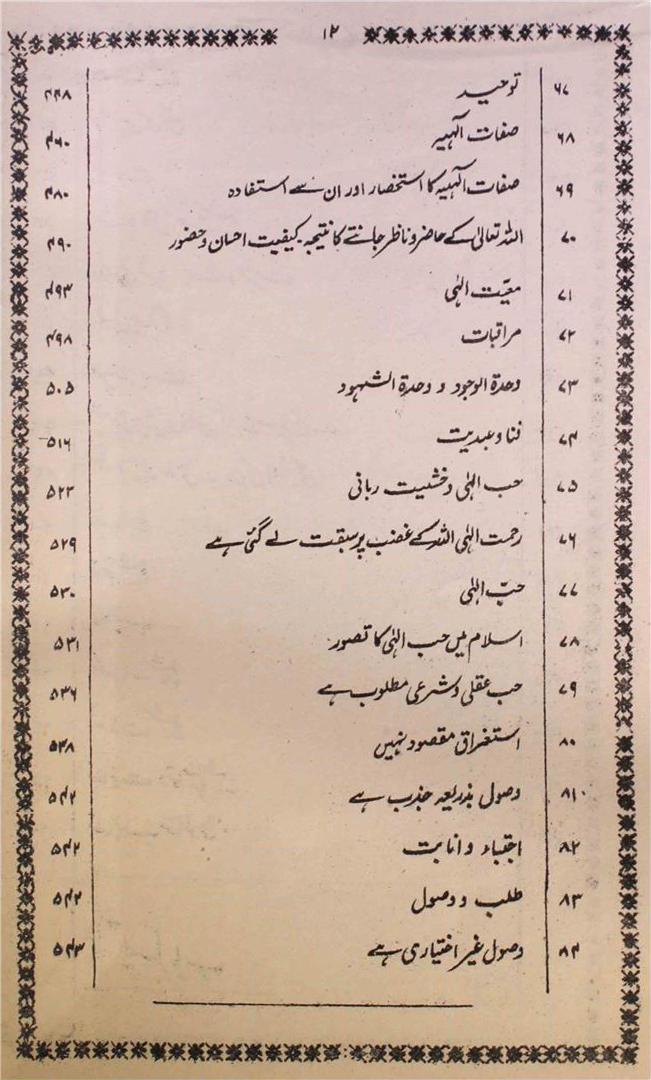 ۱۲
۶۷ توحید ۴۴۸
۶۸ صفات الٰہیہ ۴۶۰
۶۹ صفات الٰہیہ کا استحضار اور ان سے استفادہ ۴۸۰
۷۰ اللہ تعالیٰ کے حاضر و ناظر جاننے کا نتیجہ۔ کیفیت احسان و حضور ۴۹۰
۷۱ معیّت الہٰی ۴۹۳
۷۲ مراقبات ۴۹۸
۷۳ وحدۃ الوجود و وحدۃ الشہود ۵۰۵
۷۴ فنا و عبدیت ۵۱۶
۷۵ حب الہٰی و خشیت ربانی ۵۲۳
۷۶ رحمت الہٰی اللہ کے غضب پر سبقت لے گئی ہے ۵۲۹
۷۷ حبّ الہٰی ۵۳۰
۷۸ اسلام میں حب الہٰی کا تصور ۵۳۱
۷۹ حب عقلی و شرعی مطلوب ہے ۵۳۶
۸۰ استغراق مقصود نہیں ۵۳۸
۸۱ وصول بذریعہ جذب ہے ۵۴۲
۸۲ اجتباء و انابت ۵۴۲
۸۳ طلب و وصول ۵۴۲
۸۴ وصول غیر اختیاری ہے ۵۴۳